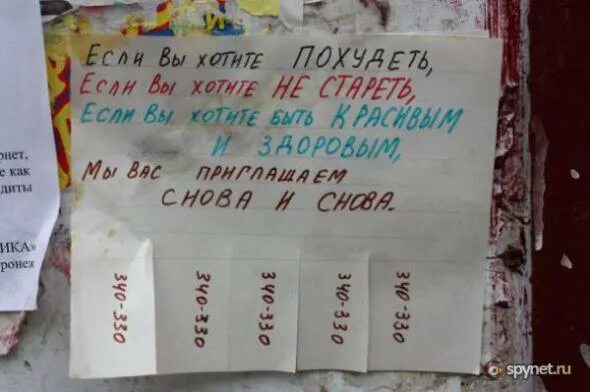 Если Вы хотите ПОХУДЕТЬ,
Если Вы хотите НЕ СТАРЕТЬ,
Если Вы хотите быть КРАСИВЫМ
И ЗДОРОВЫМ,
Мы Вас приглашаем
СНОВА И СНОВА.
340-330
340-330
340-330
340-330
340-330
рнет,
е как
диты
ИКА»
ронеж
spynet.ru